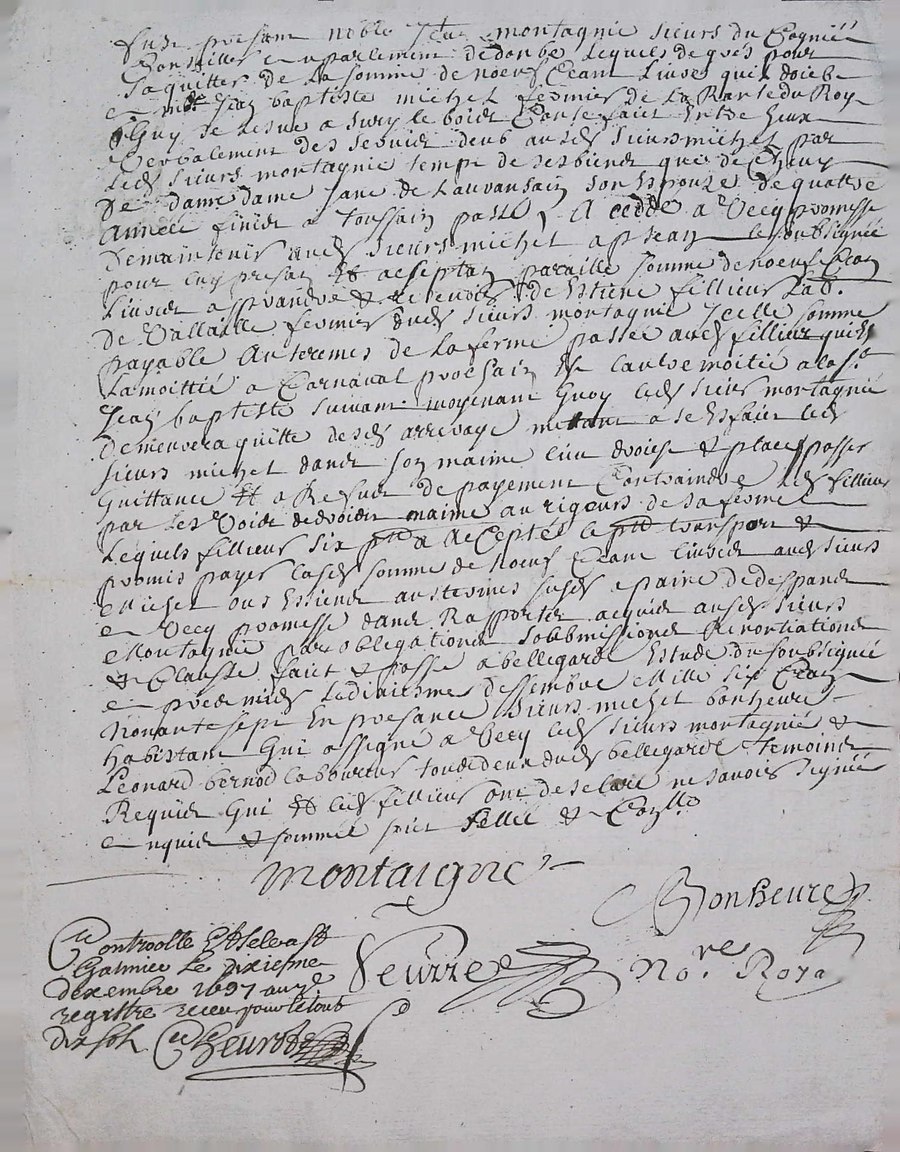 Fust presant noble Jean montagnie sieurs du Cognieé
Conseiller en parlement dedonbe Lequels de gres pour
Saquitter de La somme de noeuf Ceant Livres quil doieb
a mre Jean baptiste michel fermier de La Rante du Roy
Guy de a sury le bois Conte faict Entre Heux
Verbalement des servis deub ausd sieurs michel par
Led sieurs montagnie temp de ses biens que de Cheux
De dame dame Jane de Lauvansain son Espouze de quattre
Année finies a Toussain passé A cedde a Vecq promesse
Demaintenir aud sieurs michel apsean le soubsignée
pour luy presan Et acseptan paraille somme denoeuf Cean
Livres a prandre & Recepvoir de Estiene fillieurs Lab.
De Vallaille fermier dud sieurs montagnie Jcelle somme
payable Au teremes de La ferme passée aud fillieur quiest
Lamoittié a Carnaval prochain Et Lautre moitié a la St
Jean baptiste suivant moyenant Quoy led sieurs montagnie
Demeurera quitte desd arrerage mettant a se Esfaict led
sieurs michel dans son maime Lieu droict & place passer
Quittance Et a Refuds de payement Contraindre led fillieur
par Les Voies dedroict maime au rigeurs de sa ferme
Lequels fillieurs six pnt a acCepté le pnt transport &
promis payer lasd somme de noeuf Ceant Livres aud sieurs
Michel ous Essiens au terimes susd apaine dedespand
a Vecq promesse dans Rapporter acquid ausd sieurs
Montagnie par obligations soubmissions Renontiations
& Clauste faict & passé a bellegarde Estude du soubsignée
a pred midy Lediaithme dessembre Mille six Cean
Nonante sept En presance sieurs michel bonheure
habittant Qui assigné a Vecq led sieurs montagnié &
Leonard bernod labourcur toudedeux dud bellegarde temoins
Requid Qui Et led fillieurs ont deselaré ne savoir signée
enquid & sommée soict sellé & Con.lle
montaigne
Bonheure
Controolle Et selea St
Galmier Le Dixiesme
dexembre 1697 au 2e
registre receu pour le tout
dix solz
Veurre
No.re Roya